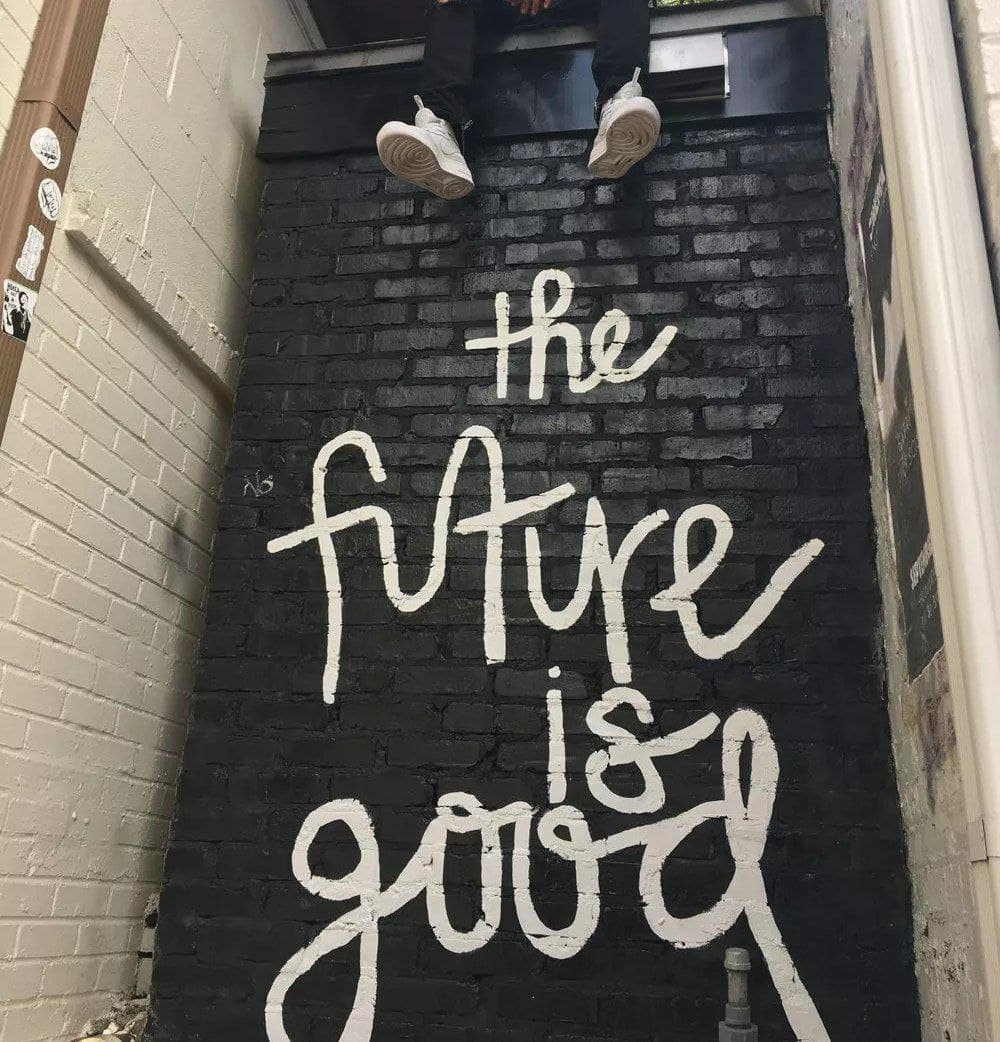 the
future
is
good
No